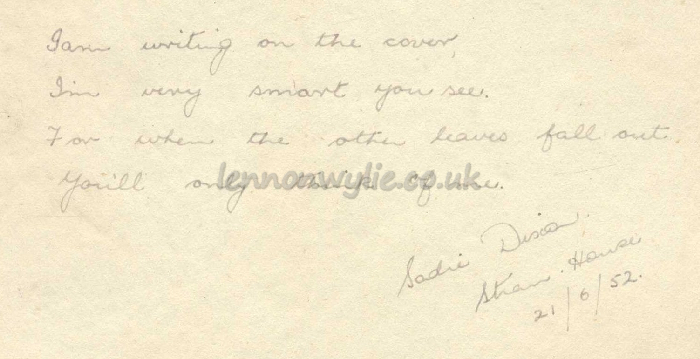 I am writing on the cover,
I'm very smart you see.
For when the other leaves fall out
You'll only think of me.
lennonwylie.co.uk
Sadie Dixon.
Stran. House
21/6/52.